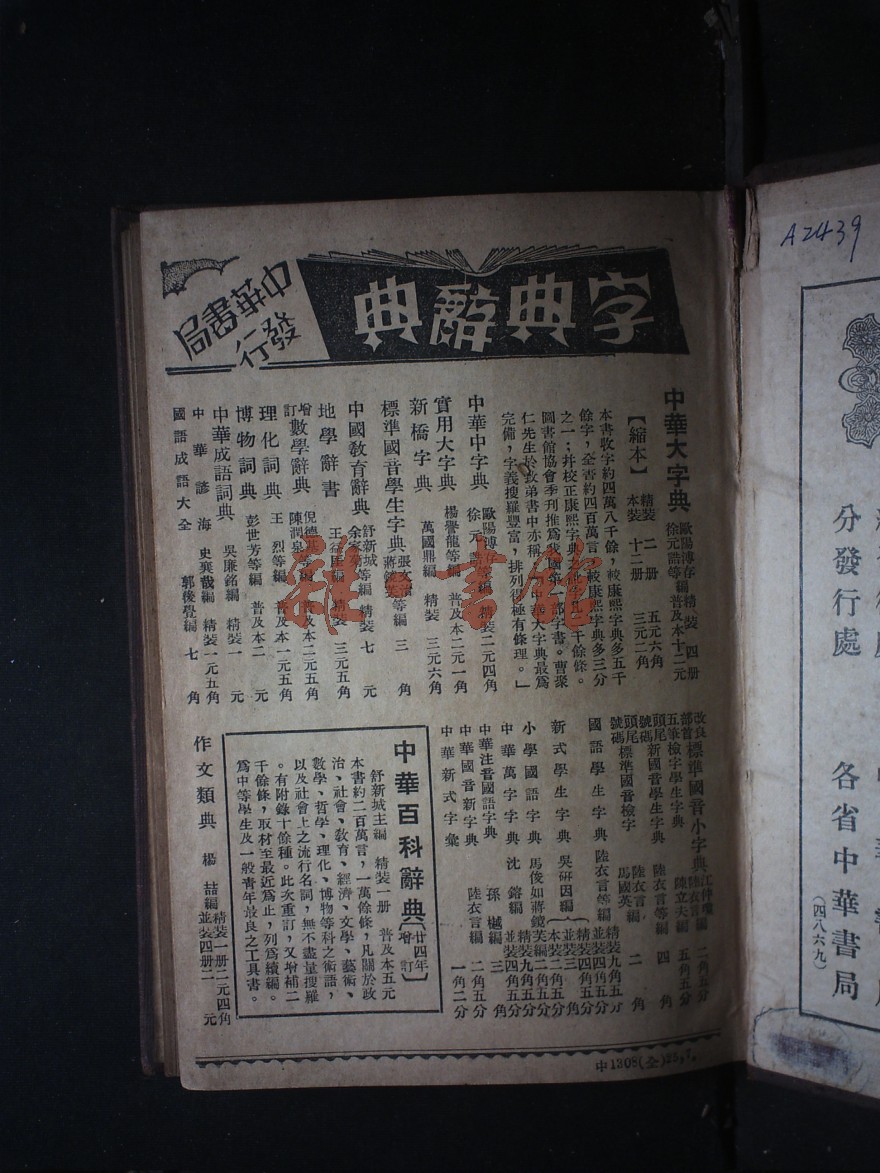 字典辭典
中華書局
發行
中華大字典
歐陽溥存
徐元誥等編
精裝 四册
普及本十二元
【縮本】
精裝 二册 五元六角
本裝 十二册 三元二角
本書收字約四萬八千餘，較康熙字典多五千
餘字，全書約四百萬言，較康熙字典多三分
之一；并校正康熙字典
千餘條。
圖書館協會季刊推爲我國第一部字書。曹聚
仁先生於致弟書中亦稱「中華大字典最爲
完備，字義搜羅豐富，排列得極有條理。」
中華中字典 歐陽溥存等編 徐元誥 精裝二元四角
實用大字典 楊譽龍等編 普及本二元一角
新橋字典 萬國鼎編 精裝 三元六角
標準國音學生字典 張文治 蔣鏡芙等編 三角
中國教育辭典 舒新城 余家菊等編 精裝 七元
地學辭書 王益厓編 精裝 三元五角
增訂數學辭典 倪德基等編 陳潤泉 普及本二元五角
理化詞典 王烈等編 普及本一元五角
博物詞典 彭世芳等編 普及本 二元
中華成語詞典 吳廉銘編 精裝 一元
中華諺海 史襄哉編 精裝一元五角
國語成語大全 郭後覺編 七角
改良部首標準國音小字典 陸衣言編 二角五分
五筆檢字學生字典 陳立夫編 五角五分
頭尾號碼新國音學生字典 陸衣言等編 四角
頭尾號碼標準國音檢字 陸衣言 馬國英編 二角
國語學生字典 陸衣言等編 精裝九角五分 並裝四角五分
新式學生字典 吳研因編 精裝四角五分 並裝三角 本裝二角五分
小學國語字典 馬俊如蔣鏡芙編 二角五分
中華萬字字典 沈鎔編 精裝九角五分 並裝四角五分
中華注音國語字典 孫樾編 三角
中華國音新字典 陸衣言編 二角五分
中華新式字彙 一角二分
中華百科辭典〔廿四年增訂〕
舒新城主編 精裝一册 普及本五元
本書約二百萬言，一萬餘條，凡關於政
治、社會、教育、經濟、文學、藝術、
數學、哲學、理化、博物等科之術語，
以及社會上之流行名詞，無不盡量搜羅
。有附錄十餘種。此次重訂，又增補二
千餘條，取材至最近爲止，列爲續編。
爲中等學生及一般青年最良之工具書。
作文類典 楊喆編 精裝一册二元四角 並裝四册二元
中1308(全)25,7,
A2439
分發行處
各省中華書局
(四八六九)
雜書館